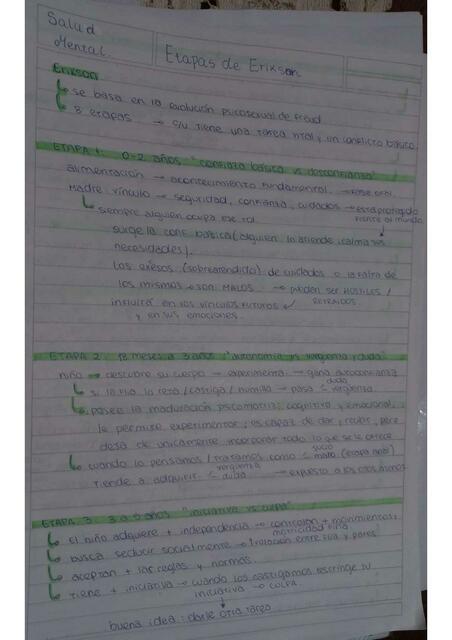 Salud
Mental
Etapas de Erikson
Erikson
↳ se basa en la evolución psicosexual de Freud
↳ 8 etapas → c/u tiene una tarea ntal y un conflicto básico
ETAPA 1: 0-2 años "confianza básica vs desconfianza"
alimentación → acontecimiento fundamental → fase oral
Madre: vínculo → seguridad, confianza, cuidados → esta protegido
↳ siempre alguien ocupa ese rol frente al mundo
surge la conf. básica (alguien lo atiende, calma sus
necesidades).
Los exesos (sobreatendida) de cuidados o la falta de
los mismos → son MALOS → pueden ser HOSTILES /
influirá en los vínculos FUTUROS ✓ RETRAIDOS
y en sus emociones.
ETAPA 2: 18 meses a 3 años "autonomía vs vergüenza y duda"
niño → descubre su cuerpo → experimenta → gana autoconfianza
↳ si la reta / castiga / humilla → pasa < duda vergüenza
↳ posee la maduración psicomotriz, cognitiva y emocional
le permite experimentar, es capaz de dar, recibir, pero
deja de unicamente incorporar todo lo que se le ofrece
↳ cuando lo pensamos / tratamos como < sucio malo (etapa anal)
tiende a adquirir < vergüenza duda → expuesto a los otros
ETAPA 3: 3 a 5 años "iniciativa vs culpa"
↳ El niño adquiere + independencia → controlan + movimientos,
motricidad fina
↳ busca seducir socialmente → relación entre
↳ aceptan + las reglas y normas.
↳ tiene + iniciativa → cuando los castigamos restringe su
iniciativa → CULPA
buena idea: darle otra tarea